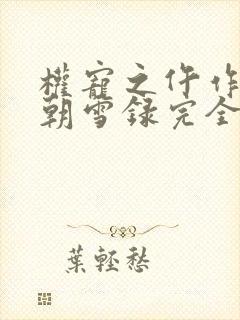 權寵之仵作
朝雪録完全
葉輕愁